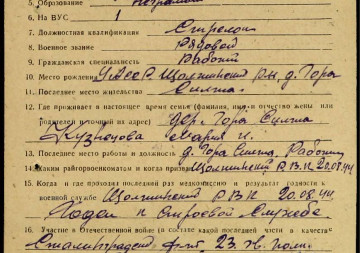 6. На ВУС 1
7. Должностная квалификация Стрелок
8. Военное звание Рядовой
9. Гражданская специальность Рабочий
10. Место рождения УАССР р-н, д. Гора
11. Последнее место жительства Силша.
12. Где проживает в настоящее время семья (фамилия, имя и отчество жены или
родителей и точный их адрес) дер. Гора Силша
Кузнецова Мария И.
13. Последнее место работы и должность д. Гора Силша, Рабочий
14. Каким райгорвоенкоматом и когда призван Р.В.К. 20.08.44
15. Когда и где проходил последний раз медкомиссию и результат годности к
военной службе Р.В.К. 20.08.44
Годен к строевой службе
16. Участие в Отечественной войне (в составе какой последней части и качестве
Сталинградский фрт 23